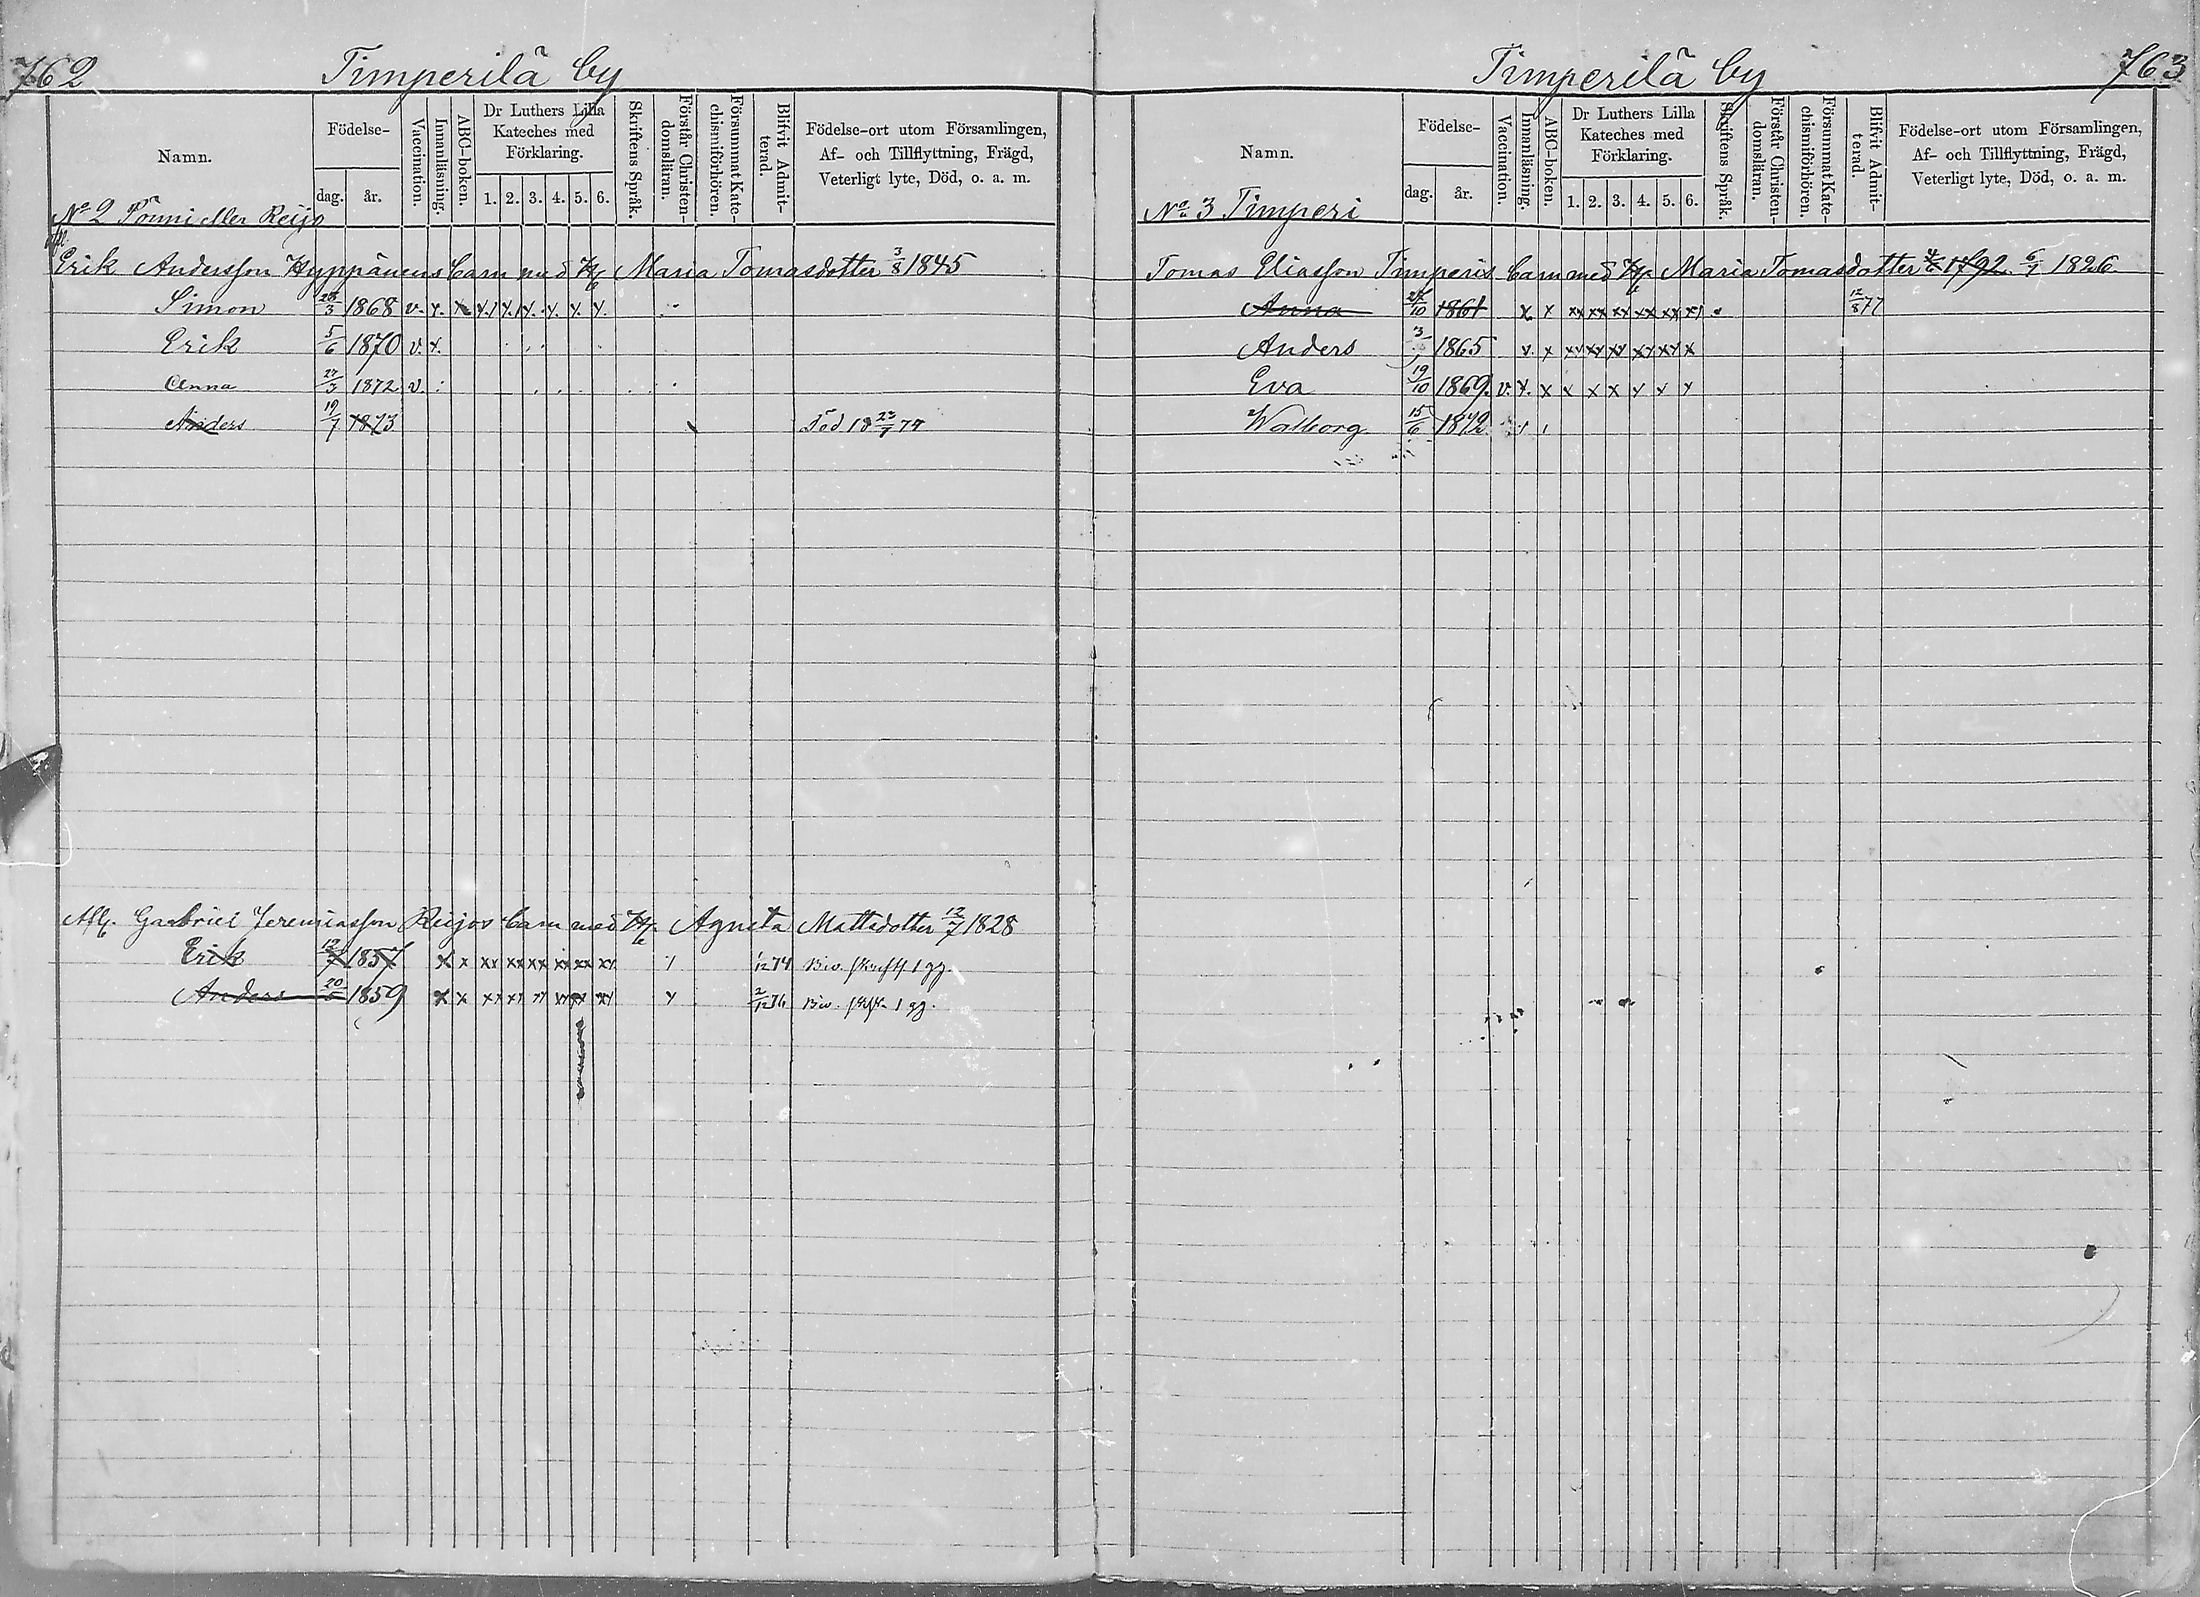 762
Timperilä by
Namn.
Födelse-
dag. år.
Vaccination.
Innanläsning.
ABC-boken.
Dr Luthers Lilla
Kateches med
Förklaring.
1. 2. 3. 4. 5. 6.
Skriftens Språk.
Förstår Christen-
domsläran.
Försummat Kate-
chismiförhören.
Blifvit Admit-
terad.
Födelse-ort utom Församlingen,
Af- och Tillflyttning, Frägd,
Veterligt lyte, Död, o. a. m.
No 2 Pönni eller Reijo
Erik Andersson Hyppänens barn med H Maria Tomasdotter 3/8 1845
Simon 28/3 1868 v. x. x x x x x x x
Erik 5/6 1870 v. x.
Anna 27/3 1872 v.
Anders 19/7 1873 död 18 23/7 74
Afl. Gabriel Jeremiasson Reijos barn med H Agneta Mattsdotter 12/7 1828
Erik 12/7 1857 x x xx xx xx xx xx xx 1/12 74 1 gg.
Anders 20/5 1859 x x xx xx xx xx xx xx x 2/12 76 1 gg.
763
Timperilä by
Namn.
Födelse-
dag. år.
Vaccination.
Innanläsning.
ABC-boken.
Dr Luthers Lilla
Kateches med
Förklaring.
1. 2. 3. 4. 5. 6.
Skriftens Språk.
Förstår Christen-
domsläran.
Försummat Kate-
chismiförhören.
Blifvit Admit-
terad.
Födelse-ort utom Församlingen,
Af- och Tillflyttning, Frägd,
Veterligt lyte, Död, o. a. m.
No 3 Timperi
Tomas Eliasson Timperis barn med H Maria Tomasdotter 1792 6/1 1826
Anna 1861 x x xx xx xx xx xx x 12/8 77
Anders 1865 x x xx xx xx xx xx x
Eva 19/10 1869 v. x. x x x x x x x
Walborg 15/6 1872